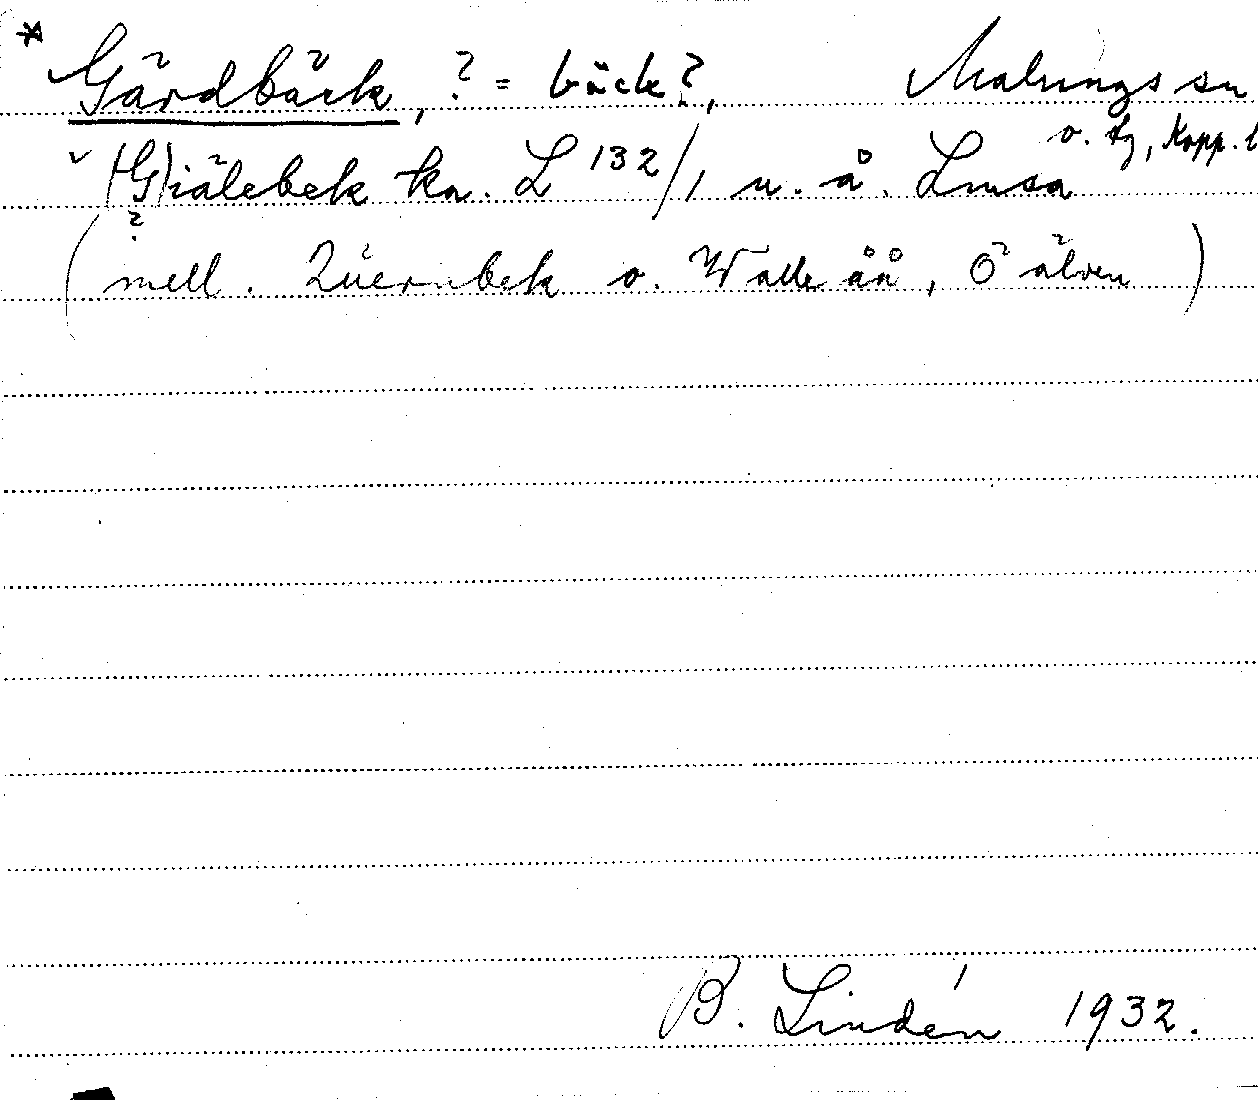 * Gärdbäck, ? = bäck?, Malungs sn
o. tg, Kopp. l
(G)iälebek ka. L 132/, u. å. Lmsa
?
(mell. Quernbek o. Walle åå, Ö älven)
B. Lindén 1932.